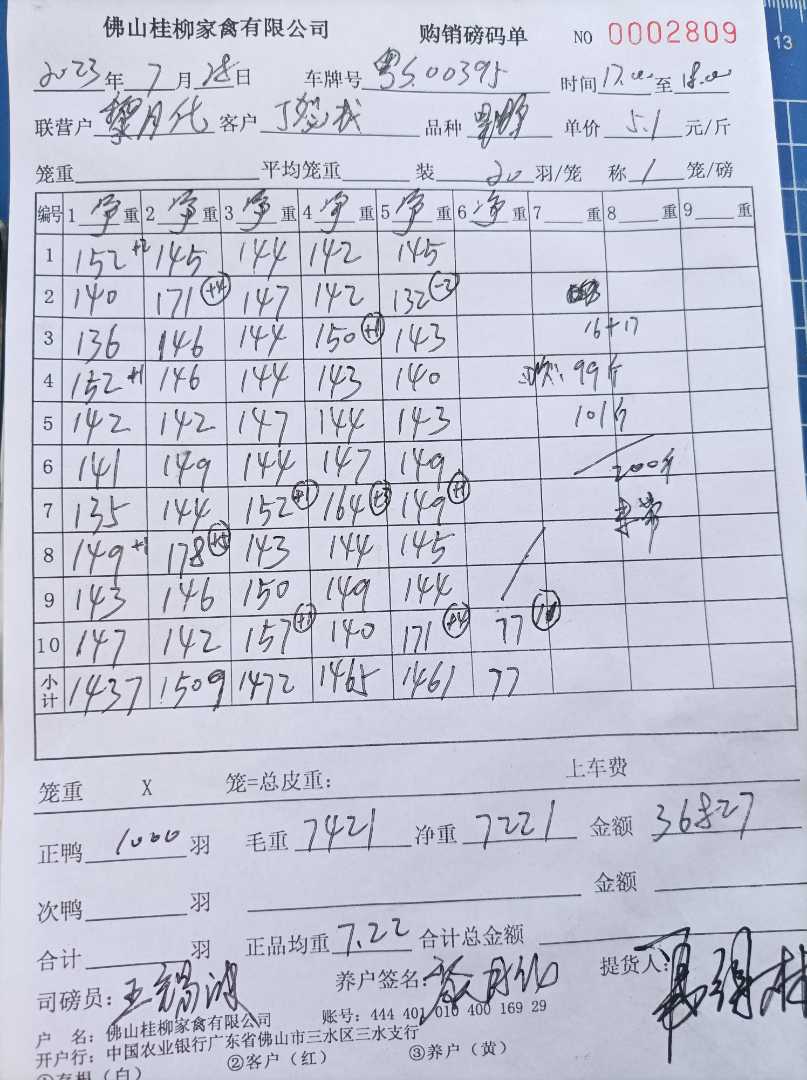 佛山桂柳家禽有限公司 购销磅码单 NO 0002809
2023年7月28日 车牌号 粤S.00395 时间17.00至18.00
联营户 客户 品种 单价5.1元/斤
笼重 平均笼重 装20羽/笼 称1笼/磅
编号 1净重 2净重 3净重 4净重 5净重 6净重 7重 8重 9重
1 152+2 145 144 142 145
2 140 171+4 147 142 132-2
3 136 146 144 150+1 143 16+17
4 152+1 146 144 143 140 99斤
5 142 142 147 144 143 101斤
6 141 149 144 147 149 200斤
7 135 144 152+1 164+3 149+1
8 149+1 178+5 143 144 145
9 143 146 150 149 144
10 147 142 157+1 140 171+4 77
小计 1437 1509 1472 1465 1461 77
笼重 X 笼=总皮重: 上车费
正鸭1000羽 毛重7421 净重7221 金额36827
次鸭 羽 金额
合计 羽 正品均重7.22 合计总金额
司磅员: 养户签名: 提货人:
户 名: 佛山桂柳家禽有限公司 账号: 444 401 010 400 169 29
开户行: 中国农业银行广东省佛山市三水区三水支行
①存根(白) ②客户(红) ③养户(黄)
13